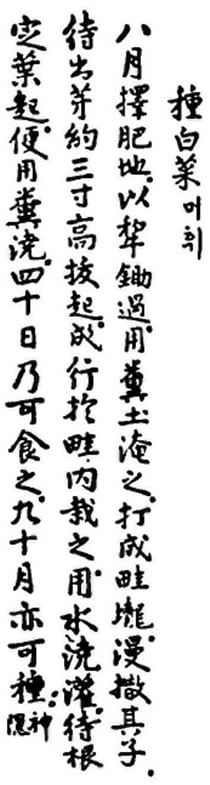 種白菜 머휘
八月擇肥地.以犁鋤過.用糞土淹之.打成畦壠.漫撒其子.
待出芽約三寸高拔起.成行於畦內栽之.用水澆灌.待根
定葉起.便用糞澆.四十日乃可食之.九十月亦可種.神隠